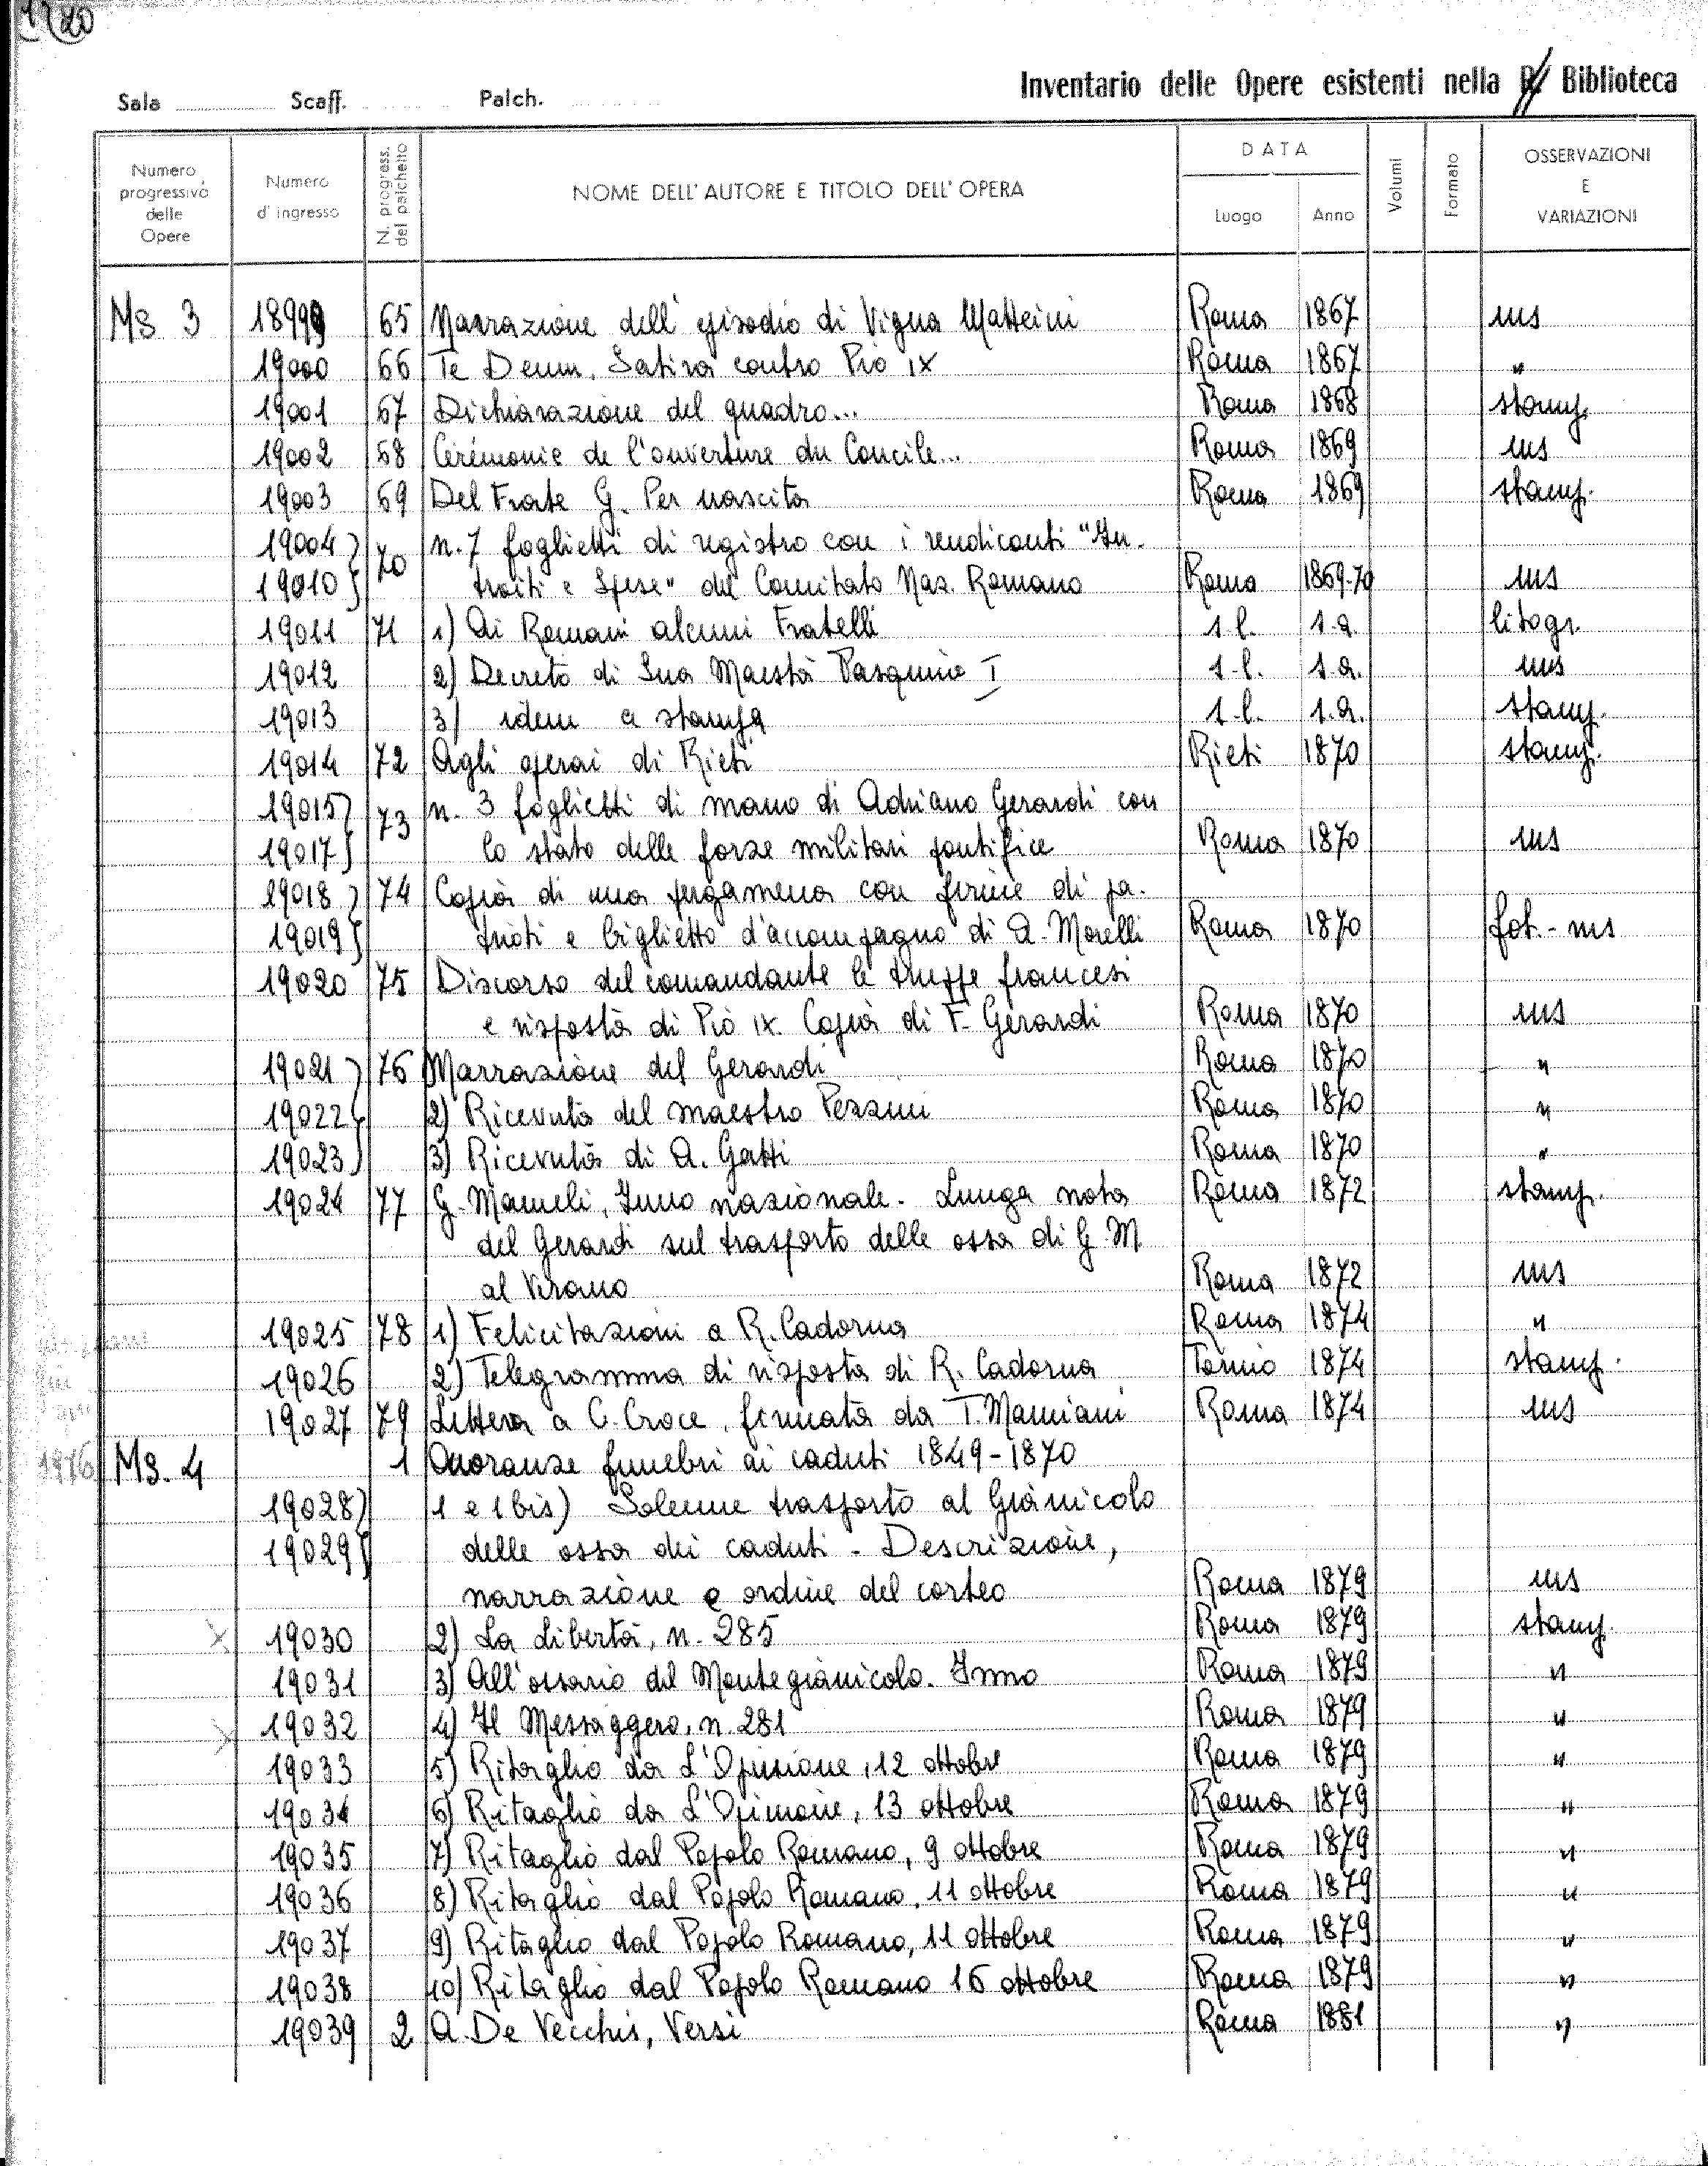 20
Inventario delle Opere esistenti nella R. Biblioteca
Sala Scaff. Palch.
Numero progressivo delle Opere
Numero d'ingresso
N. progress. del palchetto
NOME DELL'AUTORE E TITOLO DELL'OPERA
DATA
Luogo Anno
Volumi
Formato
OSSERVAZIONI E VARIAZIONI
Ms 3 18999 65 Narrazione dell'episodio di Vigna Matteini Roma 1867 ms
19000 66 Te Deum. Satira contro Pio IX Roma 1867 "
19001 67 Dichiarazione del quadro... Roma 1868 stamp.
19002 68 Cérémonie de l'ouverture du Concile... Roma 1869 ms
19003 69 Del Frate G. Per nascita Roma 1869 stamp.
19004) 70 n. 7 foglietti di registro con i rendiconti "In-
19010) troiti e Spese" del Comitato Naz. Romano Roma 1869-70 ms
19011 71 1) Ai Romani alcuni Fratelli s.l. s.a. litogr.
19012 2) Decreto di Sua Maestà Pasquino I s.l. s.a. ms
19013 3) idem a stampa s.l. s.a. stamp.
19014 72 Agli operai di Rieti Rieti 1870 stamp.
19015) 73 n. 3 foglietti di mano di Adriano Gerardi con
19017) lo stato delle forze militari pontifice Roma 1870 ms
19018) 74 Copia di una pergamena con firme di pa-
19019) trioti e biglietto d'accompagno di A. Morelli Roma 1870 fot.-ms
19020 75 Discorso del comandante le truppe francesi
e risposta di Pio IX. Copia di F. Gerardi Roma 1870 ms
19021) 76 Narrazione del Gerardi Roma 1870 "
19022) 2) Ricevuta del maestro Pezzini Roma 1870 "
19023) 3) Ricevuta di A. Gatti Roma 1870 "
19024 77 G. Mameli, Inno nazionale. Lunga nota Roma 1872 stamp.
del Gerardi sul trasporto delle ossa di G. M
al Verano Roma 1872 ms
19025 78 1) Felicitazioni a R. Cadorna Roma 1874 "
19026 2) Telegramma di risposta di R. Cadorna Torino 1874 stamp.
19027 79 Lettera a C. Croce, firmata da T. Mamiani Roma 1874 ms
1876 Ms. 4 1 Onoranze funebri ai caduti 1849-1870
19028) 1 e 1 bis) Solenne trasporto al Gianicolo
19029) delle ossa dei caduti - Descrizione,
narrazione e ordine del corteo Roma 1879 ms
19030 2) La Libertà, n. 285 Roma 1879 stamp.
19031 3) All'ossario del Montegianicolo. Inno Roma 1879 "
19032 4) Il Messaggero, n. 281 Roma 1879 "
19033 5) Ritaglio da L'Opinione, 12 ottobre Roma 1879 "
19034 6) Ritaglio da L'Opinione, 13 ottobre Roma 1879 "
19035 7) Ritaglio dal Popolo Romano, 9 ottobre Roma 1879 "
19036 8) Ritaglio dal Popolo Romano, 11 ottobre Roma 1879 "
19037 9) Ritaglio dal Popolo Romano, 11 ottobre Roma 1879 "
19038 10) Ritaglio dal Popolo Romano 16 ottobre Roma 1879 "
19039 2 A. De Vecchis, Versi Roma 1881 "